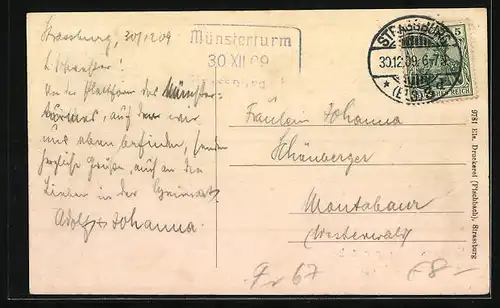 Strassburg, 30/12 09
L. Schwester!
Von der Plattform des Münster-
turmes, auf dem wir
uns eben befinden, senden
herzliche Grüße, auch an die
Lieben in der Heimat
Adolf u. Johanna.
Münsterturm
30 XII 09
STRASSBURG
30.12.09. 6-7
* (ELS.) 3
5
REICH
Fräulein Johanna
Schönberger
Montabaur
(Westerwald)
9781 Els. Druckerei (Fischbach), Strassburg
67